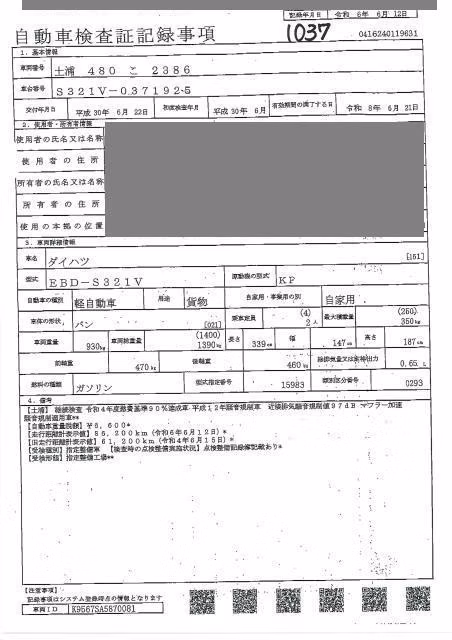 記録年月日 令和 6年 6月 12日
自動車検査証記録事項
1037
0416240119631
1. 基本情報
車両番号 土浦 480 こ 2386
車台番号 S321V-0371925
交付年月日 平成 30年 6月 22日 初度検査年月 平成 30年 6月 有効期間の満了する日 令和 8年 6月 21日
2. 使用者・所有者情報
使用者の氏名又は名称
使用者の住所
所有者の氏名又は名称
所有者の住所
使用の本拠の位置
3. 車両詳細情報
車名 ダイハツ [151]
型式 EBD-S321V 原動機の型式 KF
自動車の種別 軽自動車 用途 貨物 自家用・事業用の別 自家用
車体の形状 バン [021] 乗車定員 (4) 2人 最大積載量 (250) 350kg
車両重量 930kg 車両総重量 (1400) 1390kg 長さ 339cm 幅 147cm 高さ 187cm
前軸重 470kg 後軸重 460kg 総排気量又は定格出力 0.65 L
燃料の種類 ガソリン 型式指定番号 15983 類別区分番号 0293
4. 備考
【土浦】 継続検査 令和4年度燃費基準90%達成車 平成12年騒音規制車 近接排気騒音規制値97dB マフラー加速
騒音規制適用車**
【自動車重量税額】 ¥6,600*
【走行距離計表示値】 86,200km (令和6年6月12日)*
【旧走行距離計表示値】 61,200km (令和4年6月15日)*
【受検種別】 指定整備車 【検査時の点検整備実施状況】 点検整備記録簿記載あり*
【受検形態】 指定整備工場**
【注意事項】
記録事項はシステム登録時点の情報となります
車両ID K9567SA5870081